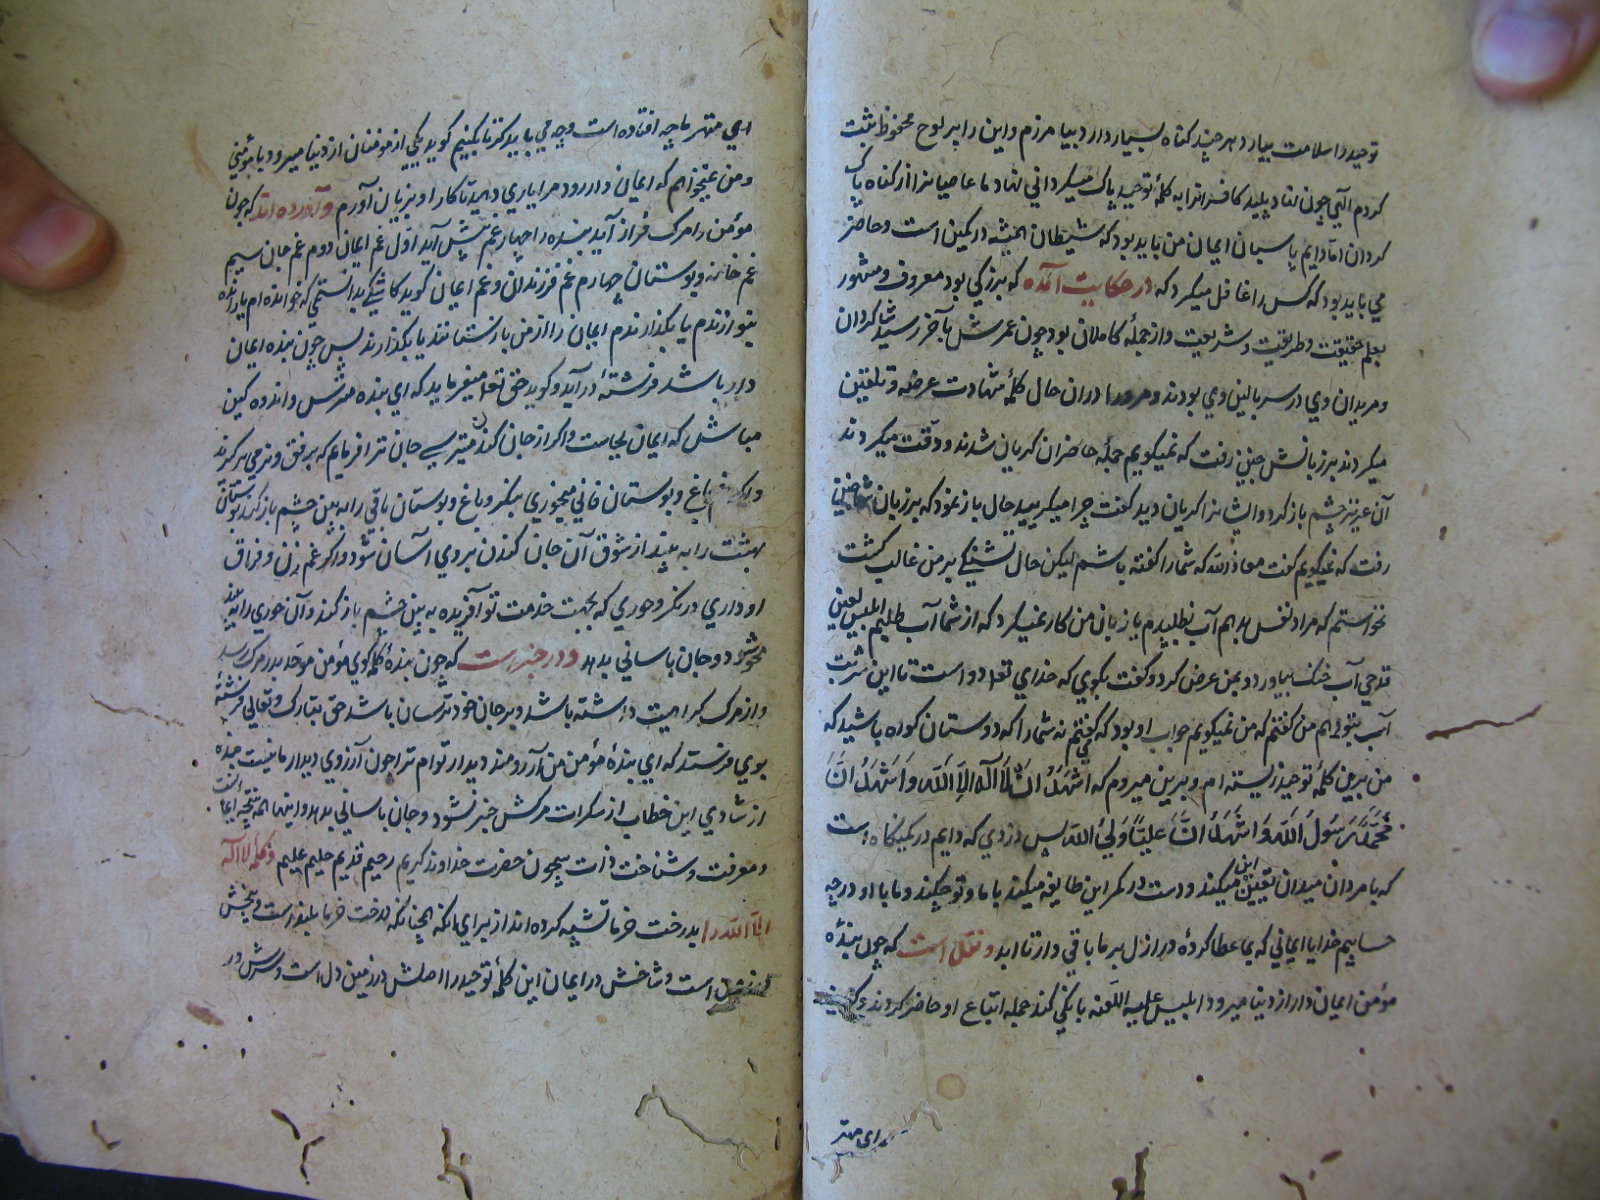 توحید را سلامت بیارد هر چند کناه بسیار دارد بیامرزم واین را بر لوح محفوظ ثبت
کردم الهی چون لقاد پلید کافر انرا به کلمهٔ توحید پاک میکردانی لقاد ما عاصیانرا از کناه پاک
کردان اما دایم پاسبان ایمان من باید بود که شیطان همیشه در کمین است وحاضر
می باید بود که کس را غافل میکرد که در حکایت آمده که بزرکی بود معروف ومشهور
بعلم حقیقت وطریقت وشریعت واز جملهٔ کاملان بود چون عمرش بآخر رسید شاکردان
ومریدان وی در سر بالین وی بودند ومرورا دران حال کلمهٔ شهادت عرضه وتلقین
میکردند بر زبانش چنین رفت که نمیکویم جمله حاضران کریان شدند ورقت میکردند
آن عزیز چشم باز کرد وایشانرا کریان دید کفت چرا میکریید حال باز نمود که بر زبان شما چنین
رفت که نمیکویم کفت معاذ الله که شما را کفته باشم لیکن حال تشنکی بر من غالب کشت
نخواستم که مراد نفس بدهم آب نطلبیدم با زبان من کار نمیکرد که از شما آب طلبم ابلیس لعین
قدحی آب خنک بیاورد وبمن عرض کرد وکفت بکوی که خدای تعا دو است تا این شربت
آب بتو دهم من کفتم که من نمیکویم جواب او بود که کفتم نه شما را که دوستان کواه باشید که
من برین کلمهٔ توحید زیسته ام وبرین میروم که اشهد ان لا اله الا الله واشهد ان
محمدا رسول الله واشهد ان علیا ولی الله پس دزدی که دایم در کمینکاه است
که با مردان میدان یقین این میکند ودست در کمر این طایفه میکند با ما وتو چکند وما با او در چه
حسابیم خدایا ایمانی که بما عطا کردهٔ در ازل بر ما باقی دار تا ابد ونقل است که چون بندهٔ
مؤمن ایمان دار از دنیا میرود ابلیس علیه اللعنه بانکی کند جمله اتباع او حاضر کردند وکویند
ای مهتر
ای مهتر ما چه افتاده است وچه می باید کرد تا بکنیم کوید یکی از مؤمنان از دنیا میرود با مؤمنی
ومن نمیخواهم که ایمان دار رود مرا یاری دهید تا کار او بزیان آورم وآورده اند که چون
مؤمن را مرک فراز آید بنده را چهار غم پیش آید اول غم ایمان دوم غم جان سیم
غم خانه وبوستان چهارم غم فرزندان وغم ایمان کوید کاشکی بدانستمی که خوانده ام یا رانده
بنوازندم یا بکذارندم ایمان را از من باز ستانند یا بکذارند پس چون بنده ایمان
دار باشد فرشتهٔ در آید وکوید حق تعا میفرماید که ای بنده مترس واندوه کین
مباش که ایمان بجاست واکر از جان کندن میترسی جان ترا فرمایم که برفق ونرمی بر کیرند
واکر غم باغ وبوستان فانی میخوری بنکر وباغ وبوستان باقی را به بین چشم باز کند بوستان
بهشت را به بیند از شوق آن جان کندن بر وی آسان شود واکر غم زن وفراق
او داری در نکر وحوری که بجهت خدمت تو آفریده به بین چشم باز کند وآن حوری را به بیند
خوش شود وجان باسانی بدهد ودر خبر است که چون بندهٔ کلمه کوی مؤمن موحد بدر مرک رسد
واز مرک کراهیت داشته باشد وبر جان خود ترسان باشد حق تبارک وتعالی فرشتهٔ
بوی فرستد که ای بندهٔ مؤمن من آرزومند دیدار توام ترا چون آرزوی دیدار ما نیست بنده
از شادی این خطاب از سکرات مرکش خبر نشود وجان باسانی بدهد واینها همه نتیجهٔ ایمانست
ومعرفت وشناخت ذات بیچون حضرت خداوند کریم رحیم قدیم حلیم علیم وکلمهٔ لا اله
الا الله را بدرخت خرما تشبیه کرده اند از برای آنکه همچنانکه درخت خرما بلند است وبیخش
است وشاخش در ایمان این کلمهٔ توحید را اصلش در زمین دل است وسرش در